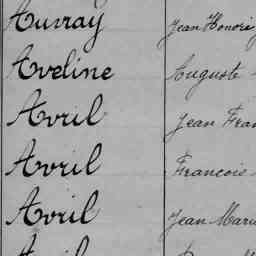 Auvray Jean Honoré
Aveline Auguste
Avril Jean Fran
Avril François
Avril Jean Marie
Avril